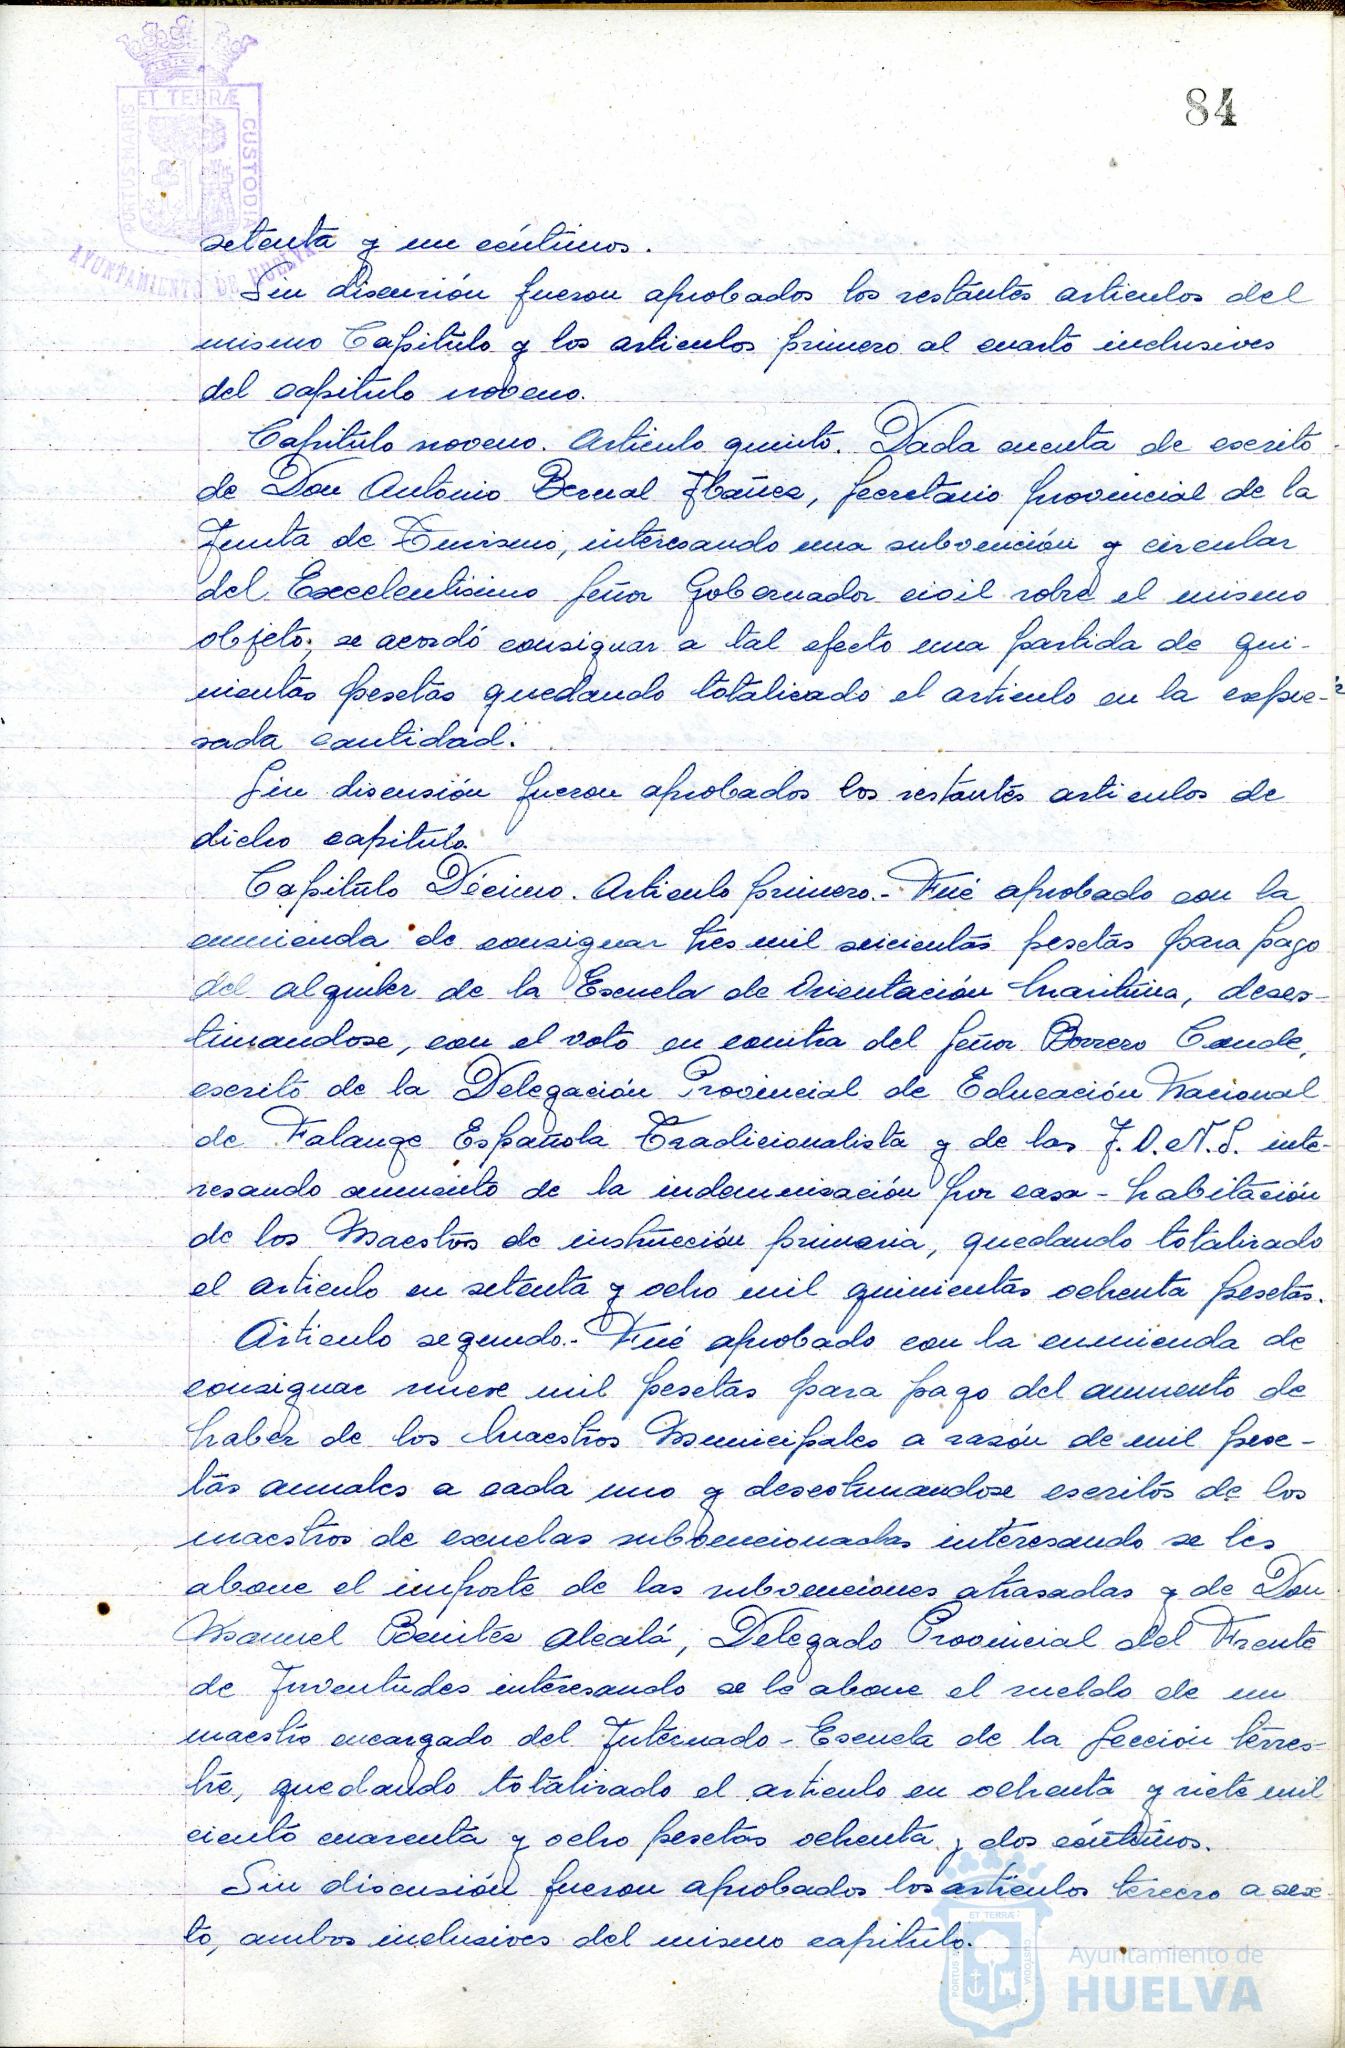 84
ET TERRÆ
PORTUS MARIS
CUSTODIA
AYUNTAMIENTO DE HUELVA
setenta y un céntimos.
Sin discusión fueron aprobados los restantes articulos del
mismo Capitulo y los articulos primero al cuarto inclusives
del capitulo noveno.
Capitulo noveno. Articulo quinto. Dada cuenta de escrito
de Don Antonio Bernal Ibañez, Secretario provincial de la
Junta de Turismo, interesando una subvención y circular
del Excelentisimo Señor Gobernador civil sobre el mismo
objeto; se acordó consignar a tal efecto una partida de qui-
nientas pesetas quedando totalizado el articulo en la expre-
sada cantidad.
Sin discusión fueron aprobados los restantes articulos de
dicho capitulo.
Capitulo Décimo. Articulo primero.- Fué aprobado con la
enmienda de consignar tres mil seicientas pesetas para pago
del alquiler de la Escuela de Orientación Maritima, deses-
timandose, con el voto en contra del Señor Borrero Conde,
escrito de la Delegación Provincial de Educación Nacional
de Falange Española Tradicionalista y de las J.O.N.S. inte-
resando aumento de la indemnización por casa-habitación
de los Maestros de instrucción primaria, quedando totalizado
el articulo en setenta y ocho mil quinientas ochenta pesetas.
Articulo segundo.- Fué aprobado con la enmienda de
consignar nueve mil pesetas para pago del aumento de
haber de los Maestros Municipales a razón de mil pese-
tas anuales a cada uno y desestimandose escritos de los
maestros de escuelas subvencionadas interesando se les
abone el importe de las subvenciones atrasadas y de Don
Manuel Benitez Alcalá, Delegado Provincial del Frente
de Juventudes interesando se le abone el sueldo de un
maestro encargado del Internado-Escuela de la Sección terres-
tre, quedando totalizado el articulo en ochenta y siete mil
ciento cuarenta y ocho pesetas ochenta y dos céntimos.
Sin discusión fueron aprobados los articulos tercero a sex-
to, ambos inclusives del mismo capitulo.
ET TERRÆ
PORTUS
CUSTODIA
Ayuntamiento de
HUELVA